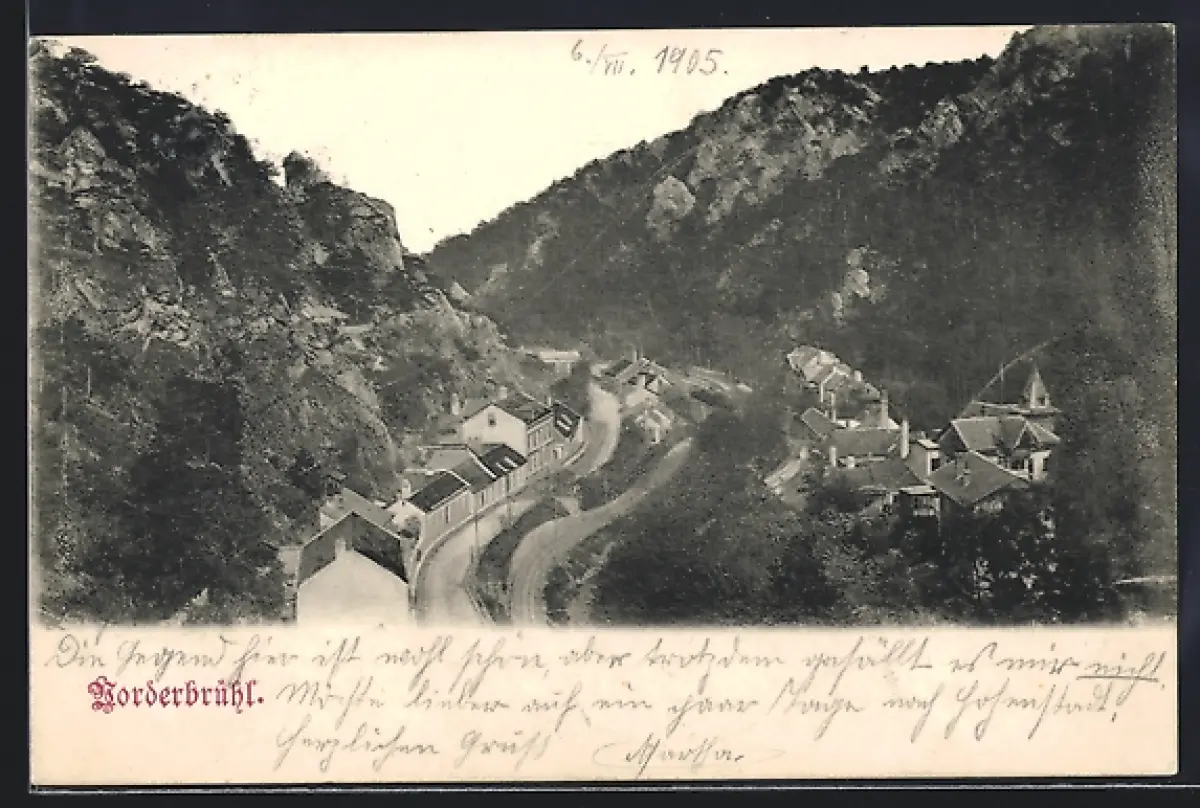 6./VII. 1905.
Die Gegend hier ist wohl schön aber trotzdem gefällt es mir nicht.
Vorderbrühl.
Möchte lieber auf ein paar Tage nach Hohenstadt,
herzlichen Gruß Martha.